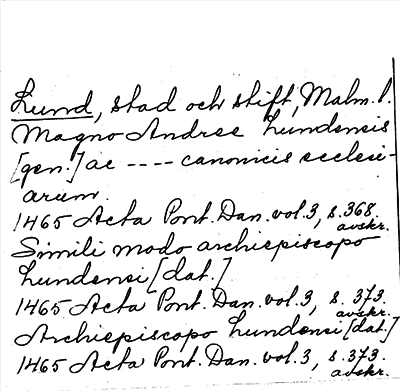 Lund, stad och stift, Malm. l.
Magno Andree Lundensis
[gen.] ac ---- canonicis ecclesi-
arum
1465 Acta Pont. Dan. vol. 3, s. 368.
avskr.
Simili modo archiepiscopo
Lundensi [dat.]
1465 Acta Pont. Dan. vol. 3, s. 373.
avskr.
Archiepiscopo Lundensi [dat.]
1465 Acta Pont. Dan. vol. 3, s. 373.
avskr.